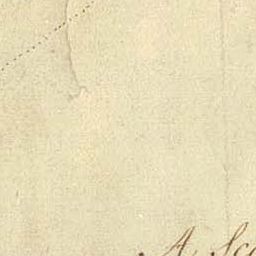 A Sc